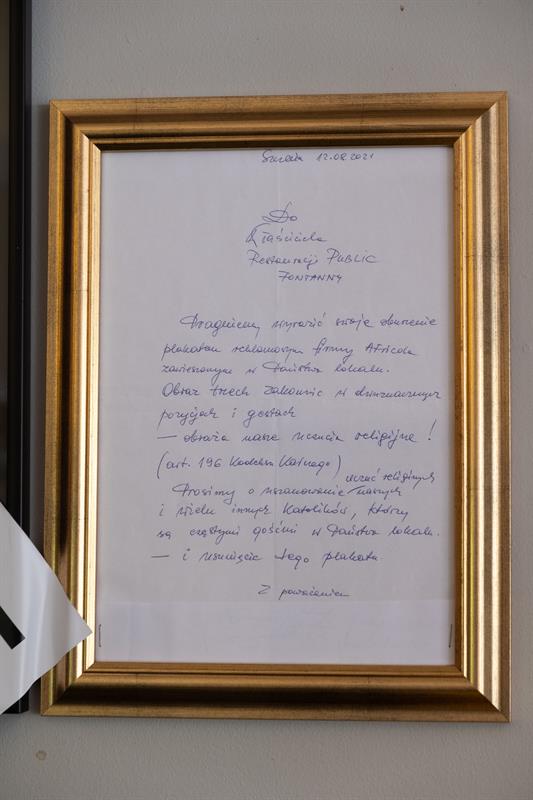 Szczecin 12.08.2021
Do
Właściciela
Restauracji PUBLIC
FONTANNY
Pragniemy wyrazić swoje oburzenie
plakatem reklamowym firmy Africola
zawieszonym w Państwa lokalu.
Obraz trzech zakonnic w dwuznacznych
pozycjach i gestach
— obraża nasze uczucia religijne!
(art. 196 Kodeksu Karnego)
Prosimy o uszanowanie uczuć religijnych naszych
i wielu innych Katolików, którzy
są częstymi gośćmi w Państwa lokalu.
— i usunięcie tego plakatu.
Z poważaniem